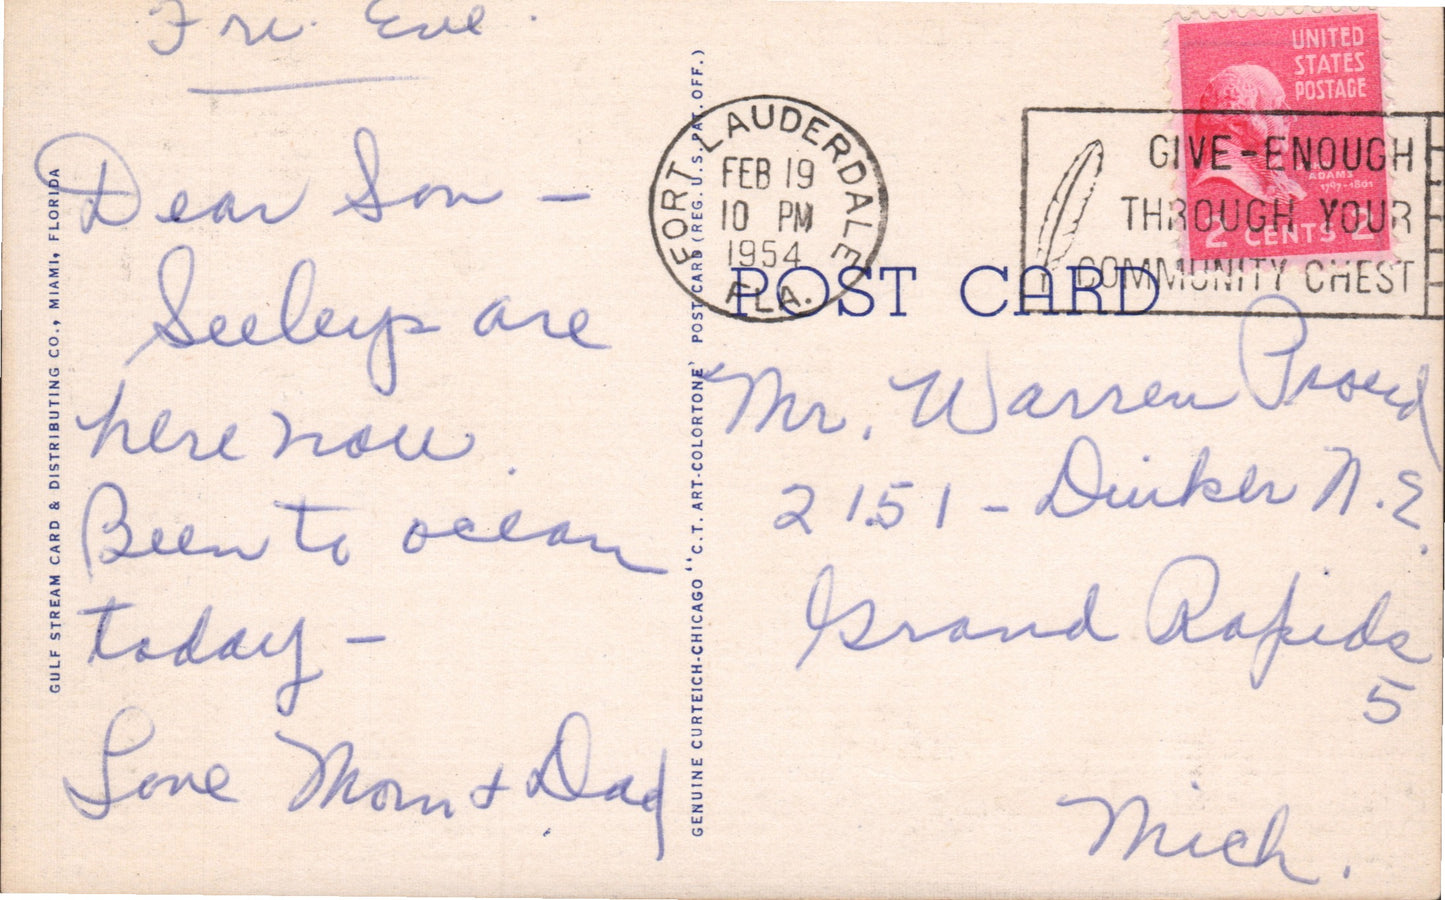 Fri. Eve.
Dear Son —
Seeleys are
here now.
Been to ocean
today —
Love Mom + Dad
GULF STREAM CARD & DISTRIBUTING CO., MIAMI, FLORIDA
GENUINE CURTEICH-CHICAGO "C.T. ART-COLORTONE" POST CARD (REG. U.S. PAT. OFF.)
FORT LAUDERDALE
FEB 19
10 PM
1954
FLA.
UNITED
STATES
POSTAGE
ADAMS
1797-1801
2 CENTS 2
GIVE-ENOUGH
THROUGH YOUR
COMMUNITY CHEST
POST CARD
Mr. Warren Proud
2151 - N.E.
Grand Rapids
5
Mich.